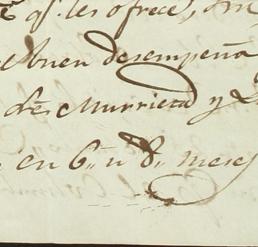 qᵉ les ofrece,
el buen desempeña
de Murrieta y
en 6„ u 8„ meses